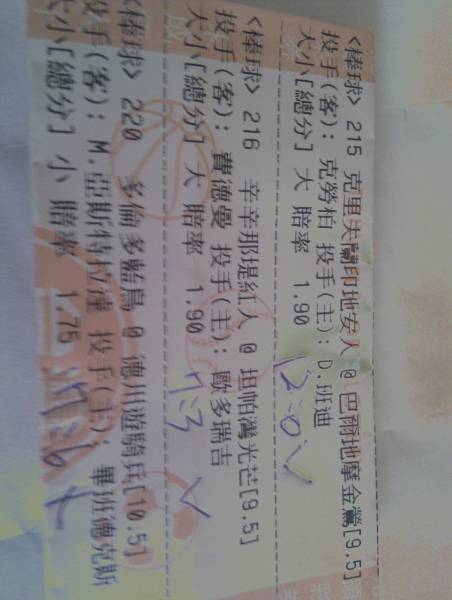 <棒球> 215 克里夫蘭印地安人 @ 巴爾地摩金鶯[9.5]
投手(客): 克勞柏 投手(主): D.班迪
大小[總分] 大 賠率 1.90
<棒球> 216 辛辛那堤紅人 @ 坦帕灣光芒[9.5]
投手(客): 費德曼 投手(主): 歐多瑞吉
大小[總分] 大 賠率 1.90
<棒球> 220 多倫多藍鳥 @ 德州遊騎兵[10.5]
投手(客): M.亞斯特拉達 投手(主): 畢班德克斯
大小[總分] 小 賠率 1.75